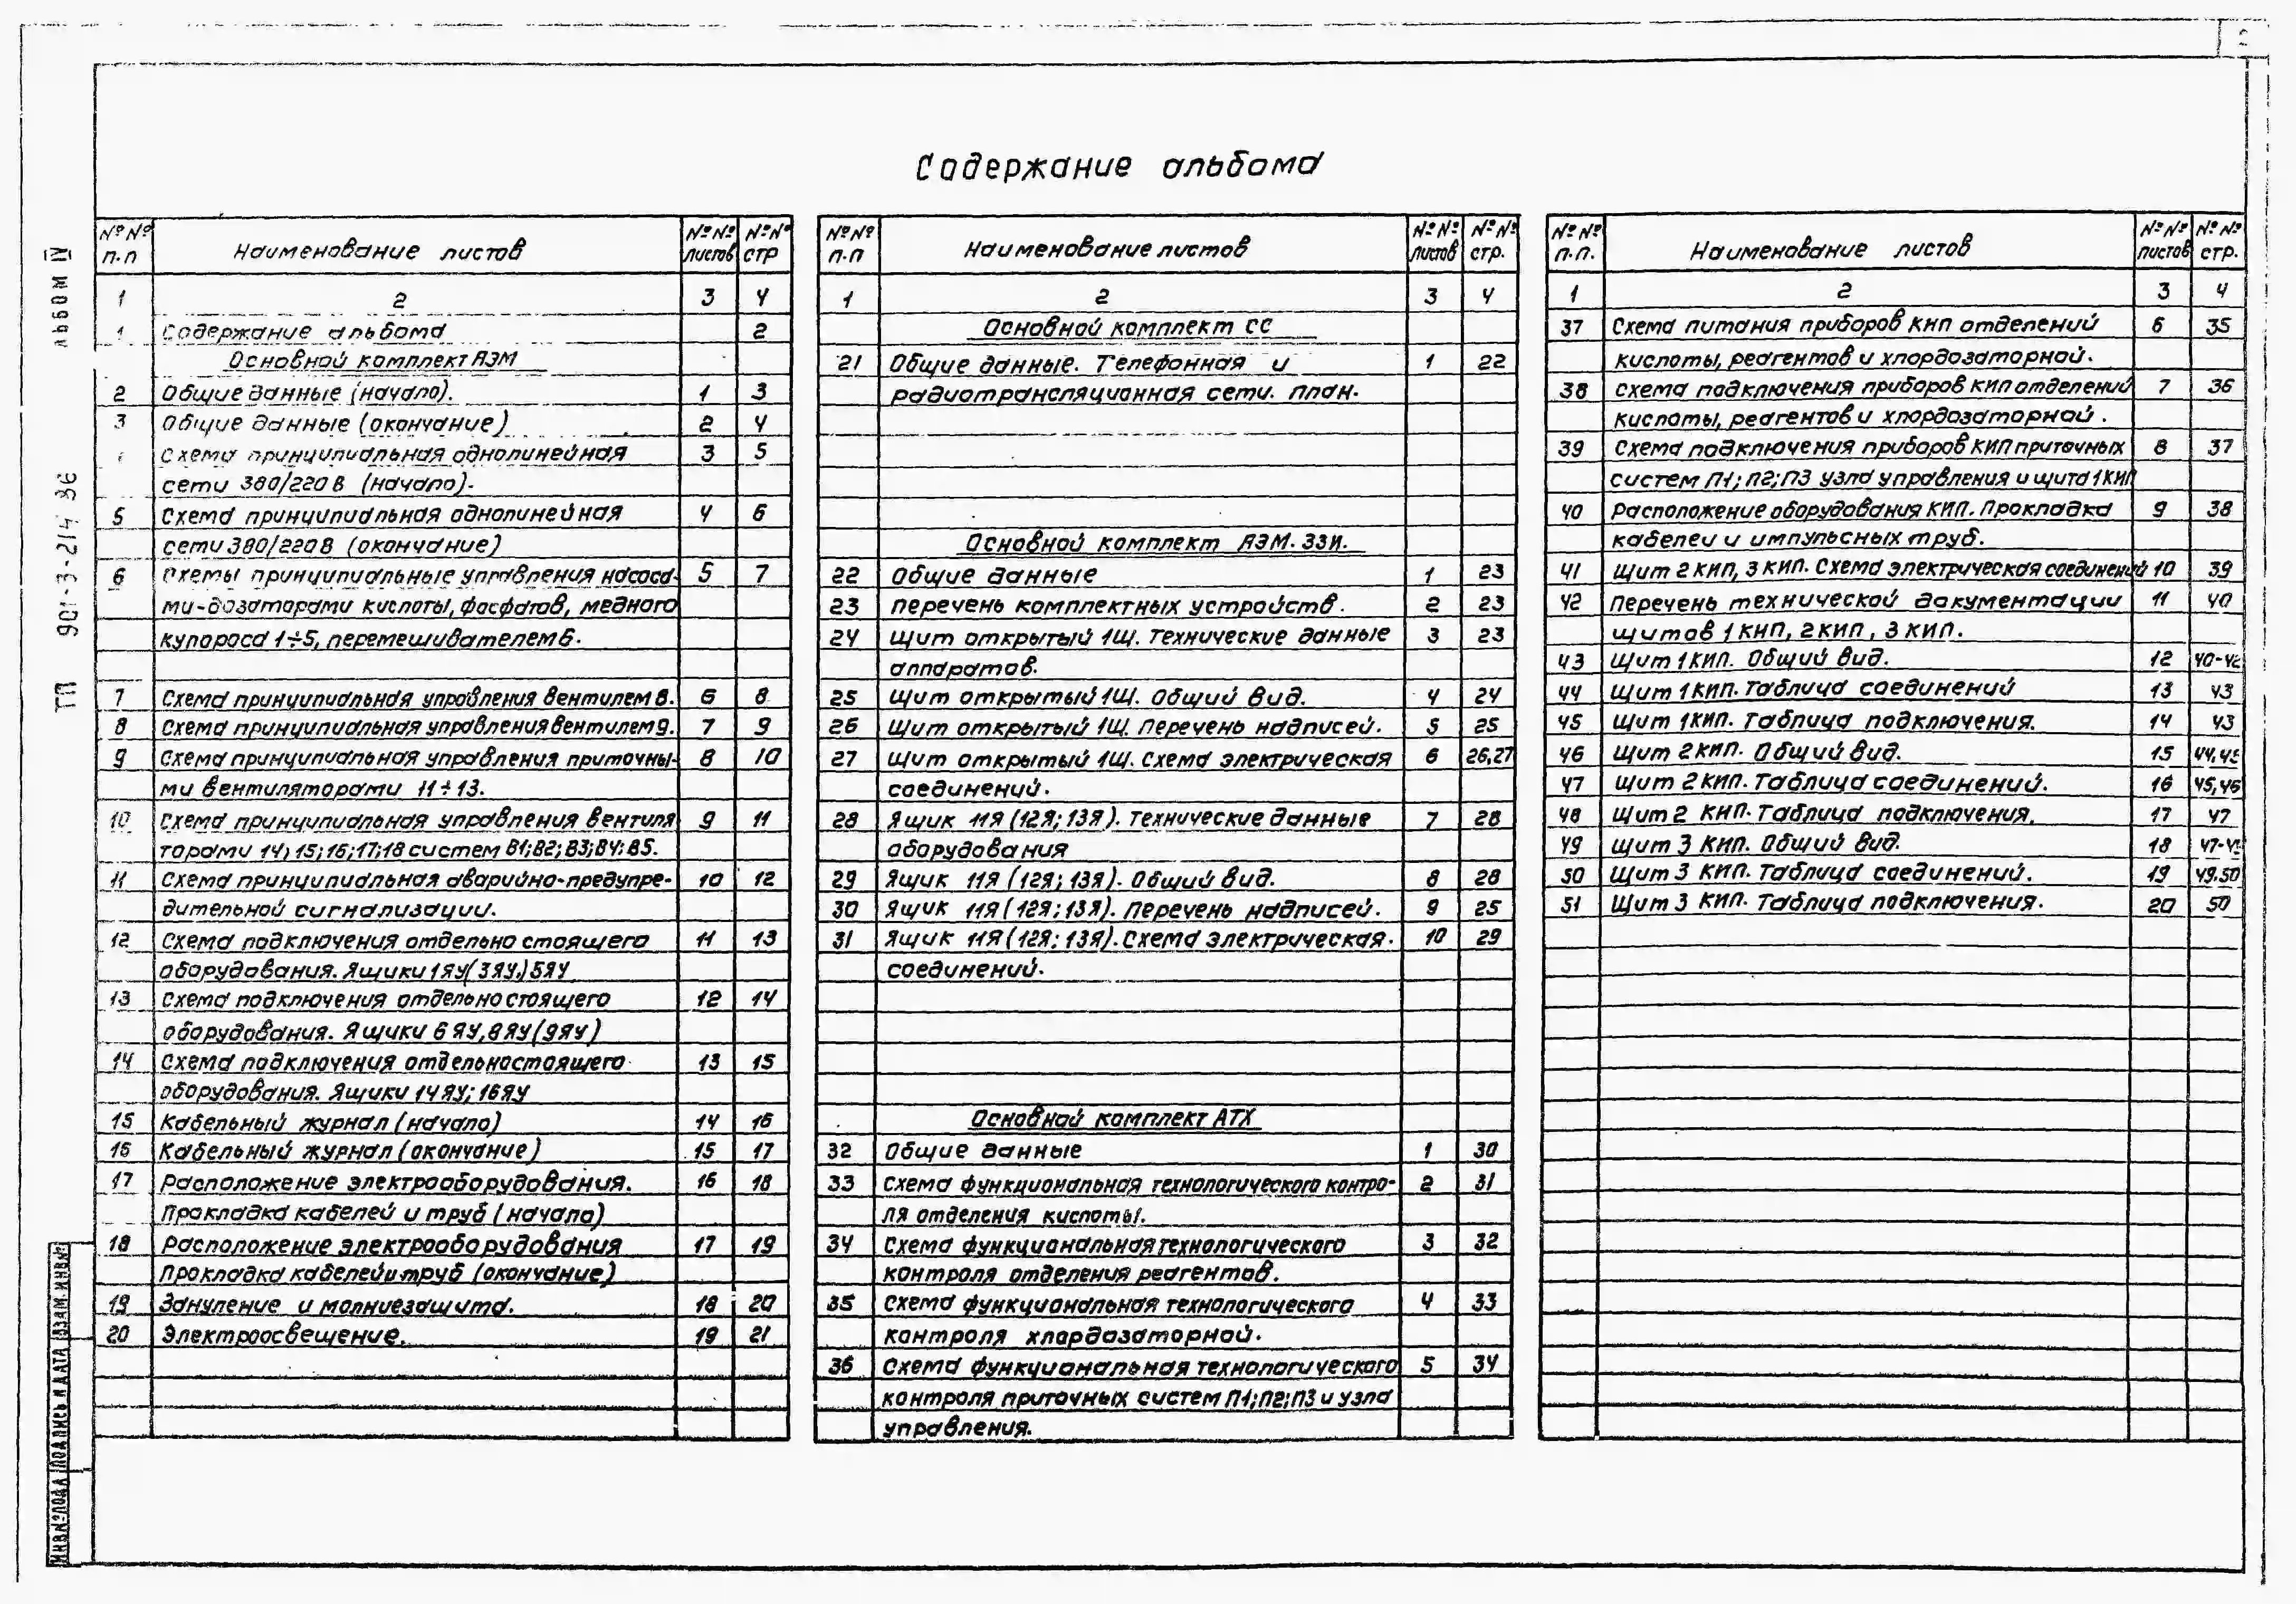 2
Содержание альбома
Альбом IV
ТП 901-3-214 86
№№ п.п | Наименование листов | №№ листов | №№ стр
1 | 2 | 3 | 4
1 | Содержание альбома | | 2
Основной комплект АЭМ
2 | Общие данные (начало). | 1 | 3
3 | Общие данные (окончание) | 2 | 4
Схема принципиальная однолинейная | 3 | 5
сети 380/220 В (начало).
5 | Схема принципиальная однолинейная | 4 | 6
сети 380/220В (окончание)
6 | Схемы принципиальные управления насоса- | 5 | 7
ми-дозаторами кислоты, фосфатов, медного
купороса 1÷5, перемешивателем 6.
7 | Схема принципиальная управления вентилем 8. | 6 | 8
8 | Схема принципиальная управления вентилем 9. | 7 | 9
9 | Схема принципиальная управления приточны- | 8 | 10
ми вентиляторами 11÷13.
10 | Схема принципиальная управления вентиля | 9 | 11
торами 14; 15; 16; 17; 18 систем В1; В2; В3; В4; В5.
11 | Схема принципиальная аварийно-предупре- | 10 | 12
дительной сигнализации.
12 | Схема подключения отдельно стоящего | 11 | 13
оборудования. Ящики 1ЯУ(3ЯУ,)5ЯУ
13 | Схема подключения отдельно стоящего | 12 | 14
оборудования. Ящики 6 ЯУ, 8 ЯУ (9ЯУ)
14 | Схема подключения отдельностоящего | 13 | 15
оборудования. Ящики 14 ЯУ; 16 ЯУ
15 | Кабельный журнал (начало) | 14 | 16
16 | Кабельный журнал (окончание) | 15 | 17
17 | Расположение электрооборудования. | 16 | 18
Прокладка кабелей и труб (начало)
18 | Расположение электрооборудования | 17 | 19
Прокладка кабелей и труб (окончание)
19 | Зануление и молниезащита. | 18 | 20
20 | Электроосвещение. | 19 | 21
№№ п.п | Наименование листов | №№ листов | №№ стр.
1 | 2 | 3 | 4
Основной комплект СС
21 | Общие данные. Телефонная и | 1 | 22
радиотрансляционная сети. План.
Основной комплект АЭМ. ЗЗИ.
22 | Общие данные | 1 | 23
23 | Перечень комплектных устройств. | 2 | 23
24 | Щит открытый 1Щ. Технические данные | 3 | 23
аппаратов.
25 | Щит открытый 1Щ. Общий вид. | 4 | 24
26 | Щит открытый 1Щ. Перечень надписей. | 5 | 25
27 | Щит открытый 1Щ. Схема электрическая | 6 | 26,27
соединений.
28 | Ящик 11Я (12Я; 13Я). Технические данные | 7 | 28
оборудования
29 | Ящик 11Я (12Я; 13Я). Общий вид. | 8 | 28
30 | Ящик 11Я (12Я; 13Я). Перечень надписей. | 9 | 25
31 | Ящик 11Я (12Я; 13Я). Схема электрическая. | 10 | 29
соединений.
Основной комплект АТХ
32 | Общие данные | 1 | 30
33 | Схема функциональная технологического контро- | 2 | 31
ля отделения кислоты.
34 | Схема функциональная технологического | 3 | 32
контроля отделения реагентов.
35 | Схема функциональная технологического | 4 | 33
контроля хлордозаторной.
36 | Схема функциональная технологического | 5 | 34
контроля приточных систем П1; П2; П3 и узла
управления.
№№ п.п. | Наименование листов | №№ листов | №№ стр.
1 | 2 | 3 | 4
37 | Схема питания приборов КИП отделений | 6 | 35
кислоты, реагентов и хлордозаторной.
38 | Схема подключения приборов КИП отделений | 7 | 36
кислоты, реагентов и хлордозаторной.
39 | Схема подключения приборов КИП приточных | 8 | 37
систем П1; П2; П3 узла управления и щита 1 КИП
40 | Расположение оборудования КИП. Прокладка | 9 | 38
кабелей и импульсных труб.
41 | Щит 2 КИП, 3 КИП. Схема электрическая соединений | 10 | 39
42 | Перечень технической документации | 11 | 40
щитов 1 КИП, 2 КИП, 3 КИП.
43 | Щит 1 КИП. Общий вид. | 12 | 40-42
44 | Щит 1 КИП. Таблица соединений | 13 | 43
45 | Щит 1 КИП. Таблица подключения. | 14 | 43
46 | Щит 2 КИП. Общий вид. | 15 | 44,45
47 | Щит 2 КИП. Таблица соединений. | 16 | 45,46
48 | Щит 2 КИП. Таблица подключения. | 17 | 47
49 | Щит 3 КИП. Общий вид. | 18
50 | Щит 3 КИП. Таблица соединений. | 19 | 49,50
51 | Щит 3 КИП. Таблица подключения. | 20 | 50
ИНВ.№ПОДЛ. ПОДПИСЬ И ДАТА ВЗАМ. ИНВ.№